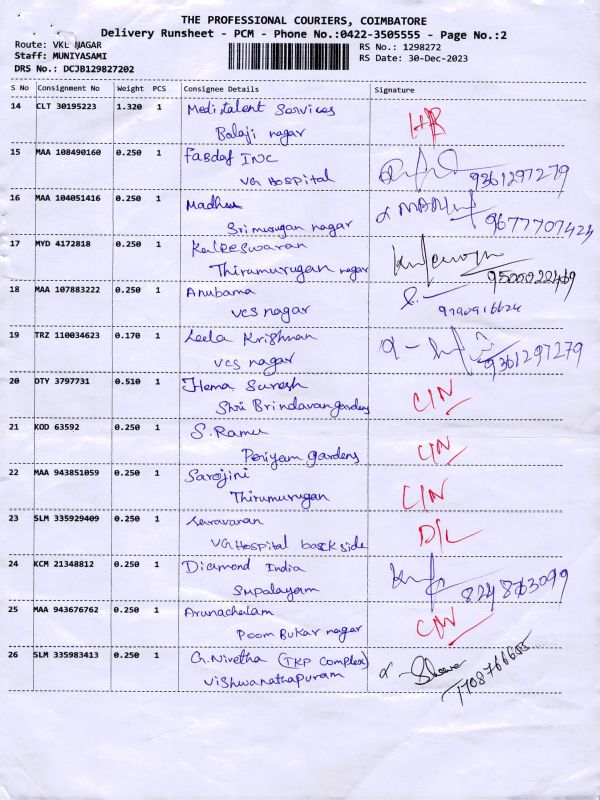 THE PROFESSIONAL COURIERS, COIMBATORE
Delivery Runsheet - PCM - Phone No.:0422-3505555 - Page No.:2
Route: VKL NAGAR
Staff: MUNIYASAMI
DRS No.: DCJB129827202
RS No.: 1298272
RS Date: 30-Dec-2023
S No Consignment No Weight PCS Consignee Details Signature
14 CLT 30195223 1.320 1 Meditalent Services
Balaji nagar
15 MAA 108490160 0.250 1 Fabdaf INC
VG Hospital 9361297279
16 MAA 104051416 0.250 1 Madhu
Sri murugan nagar 9677707424
17 MYD 4172818 0.250 1
Thirumurugan nagar
18 MAA 107883222 0.250 1 Anubama
vcs nagar 9790916624
19 TRZ 110034623 0.170 1 Leela Krishnan
vcs nagar 9361297279
20 DTY 3797731 0.510 1 Hema Suresh
Shri Brindavan gardens C/N
21 KOD 63592 0.250 1 S. Ramu
gardens C/N
22 MAA 943851059 0.250 1 Sarojini
Thirumurugan C/N
23 SLM 335929409 0.250 1 Saravanan
VG Hospital back side D/L
24 KCM 21348812 0.250 1 Diamond India
25 MAA 943676762 0.250 1 Arunachalam
Poom Bukar nagar C/N
26 SLM 335983413 0.250 1 G. Nivetha (TKP Complex)
Vishwanathapuram